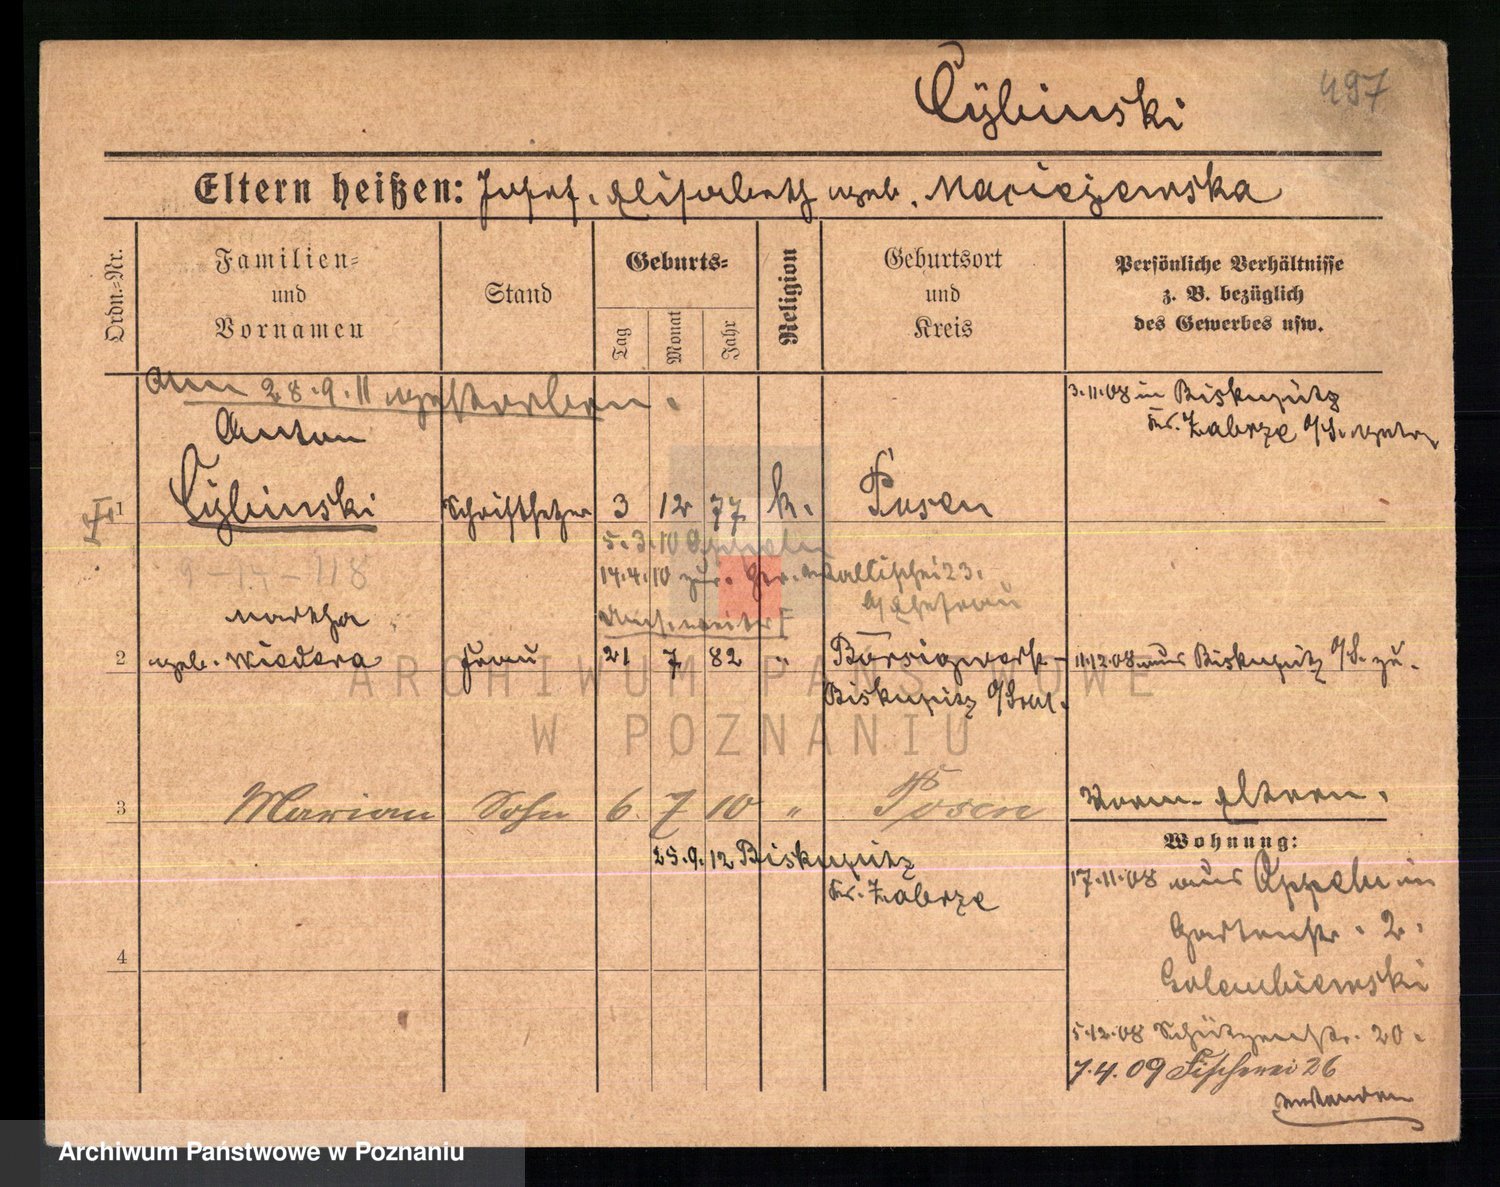 497
Cybinski
Eltern heißen: Josef, Elisabeth geb. Maciejewska
Ordn.-Nr.
Familien-
und
Vornamen
Stand
Geburts-
Tag
Monat
Jahr
Religion
Geburtsort
und
Kreis
Persönliche Verhältnisse
z. B. bezüglich
des Gewerbes usw.
Am 28.9.11 gestorben.
3.11.08 in Biskupitz
Kr. Zabrze O/S. getr.
Anton
1 Cybinski Schriftsetzer 3 12 77 k. Posen
5.3.10 Oppeln
14.4.10 zur. Gr. Wallischei 23.
Ehefrau
Martha
2 geb. Wiedera Frau 21 7 82 " Borsigwerk-
Biskupitz O/Schl.
11.12.08 aus Biskupitz O/S. zu.
3 Marian Sohn 6. 7 10 " Posen
Vorm. Eltern.
25.9.12 Biskupitz
Kr. Zabrze
Wohnung:
17.11.08 aus Oppeln in
Gartenstr. 2.
Golembiewski
5.12.08 Schützenstr. 20.
7.4.09 Fischerei 26
4
ARCHIWUM PAŃSTWOWE
W POZNANIU
Archiwum Państwowe w Poznaniu